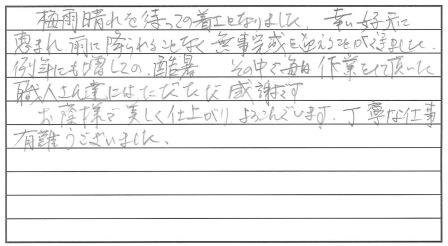 梅雨晴れを待っての着工となりました。幸い好天に
恵まれ雨に降られることなく無事完成を迎えることが出来ました。
例年にも増しての、酷暑 その中で毎日作業をして頂いた
職人さん達にはただただ感謝です
お蔭様で美しく仕上がりよろこんでいます。丁寧な仕事
有難うございました。